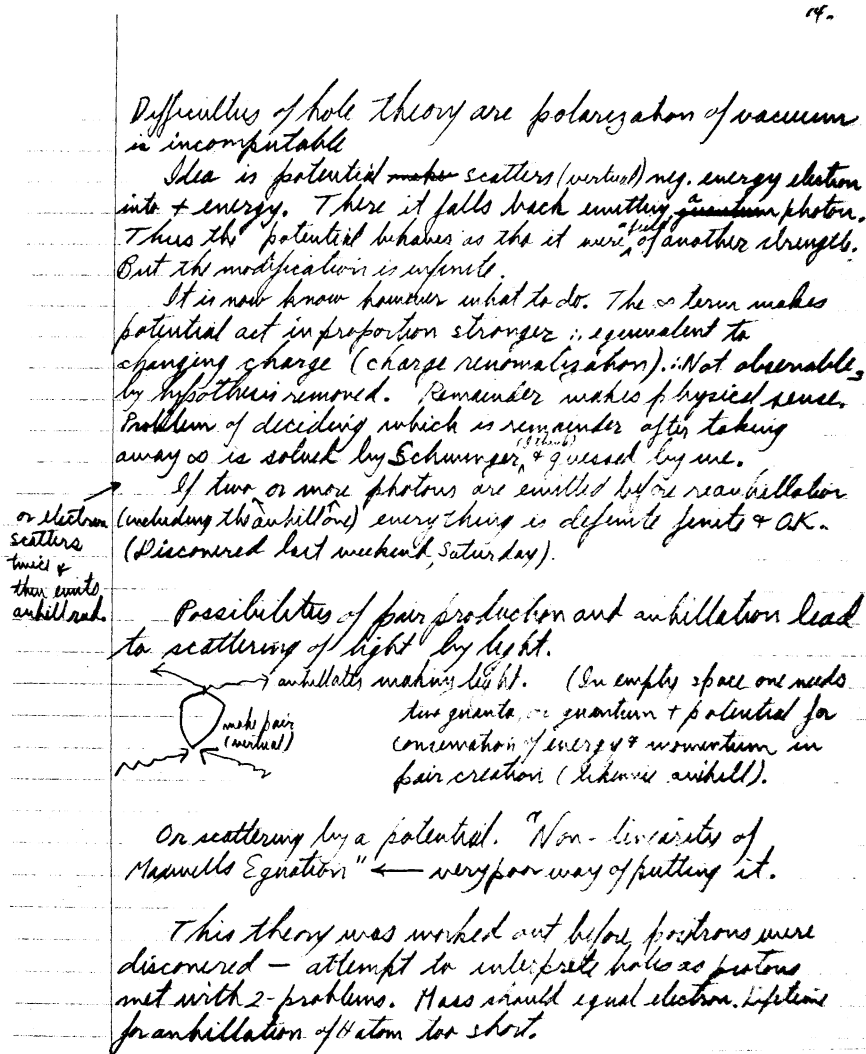 14.
Difficulties of hole theory are polarization of vacuum
is incomputable
Idea is potential make scatters (virtual) neg. energy electron
into + energy. There it falls back emitting quantum photon.
Thus the potential behaves as tho it were of another strength.
But the modification is infinite.
It is now know however what to do. The ∞ term makes
potential act in proportion stronger ∴ equivalent to
changing charge (charge renomalization). ∴ Not observable,
by hypothesis removed. Remainder makes physical sense.
Problem of deciding which is remainder after taking
away ∞ is solved by Schwinger (I think) & guessed by me.
If two or more photons are emitted before reanhillation
(including the anhill one) everything is definite finite & O.K.
(Discovered last weekend, Saturday).
or electron
scatters
twice &
then emits
anhill rad.
Possibilities of pair production and anhillation lead
to scattering of light by light.
anhillates making light. (In empty space one needs
two quanta, or quantum + potential for
make pair
(virtual)
conservation of energy & momentum in
pair creation (likewise anihill).
Or scattering by a potential. "Non-linearity of
Maxwells Equation" ← very poor way of putting it.
This theory was worked out before positrons were
discovered — attempt to interprete holes as protons
met with 2-problems. Mass should equal electron. Lifetime
for anhillation of H atom too short.